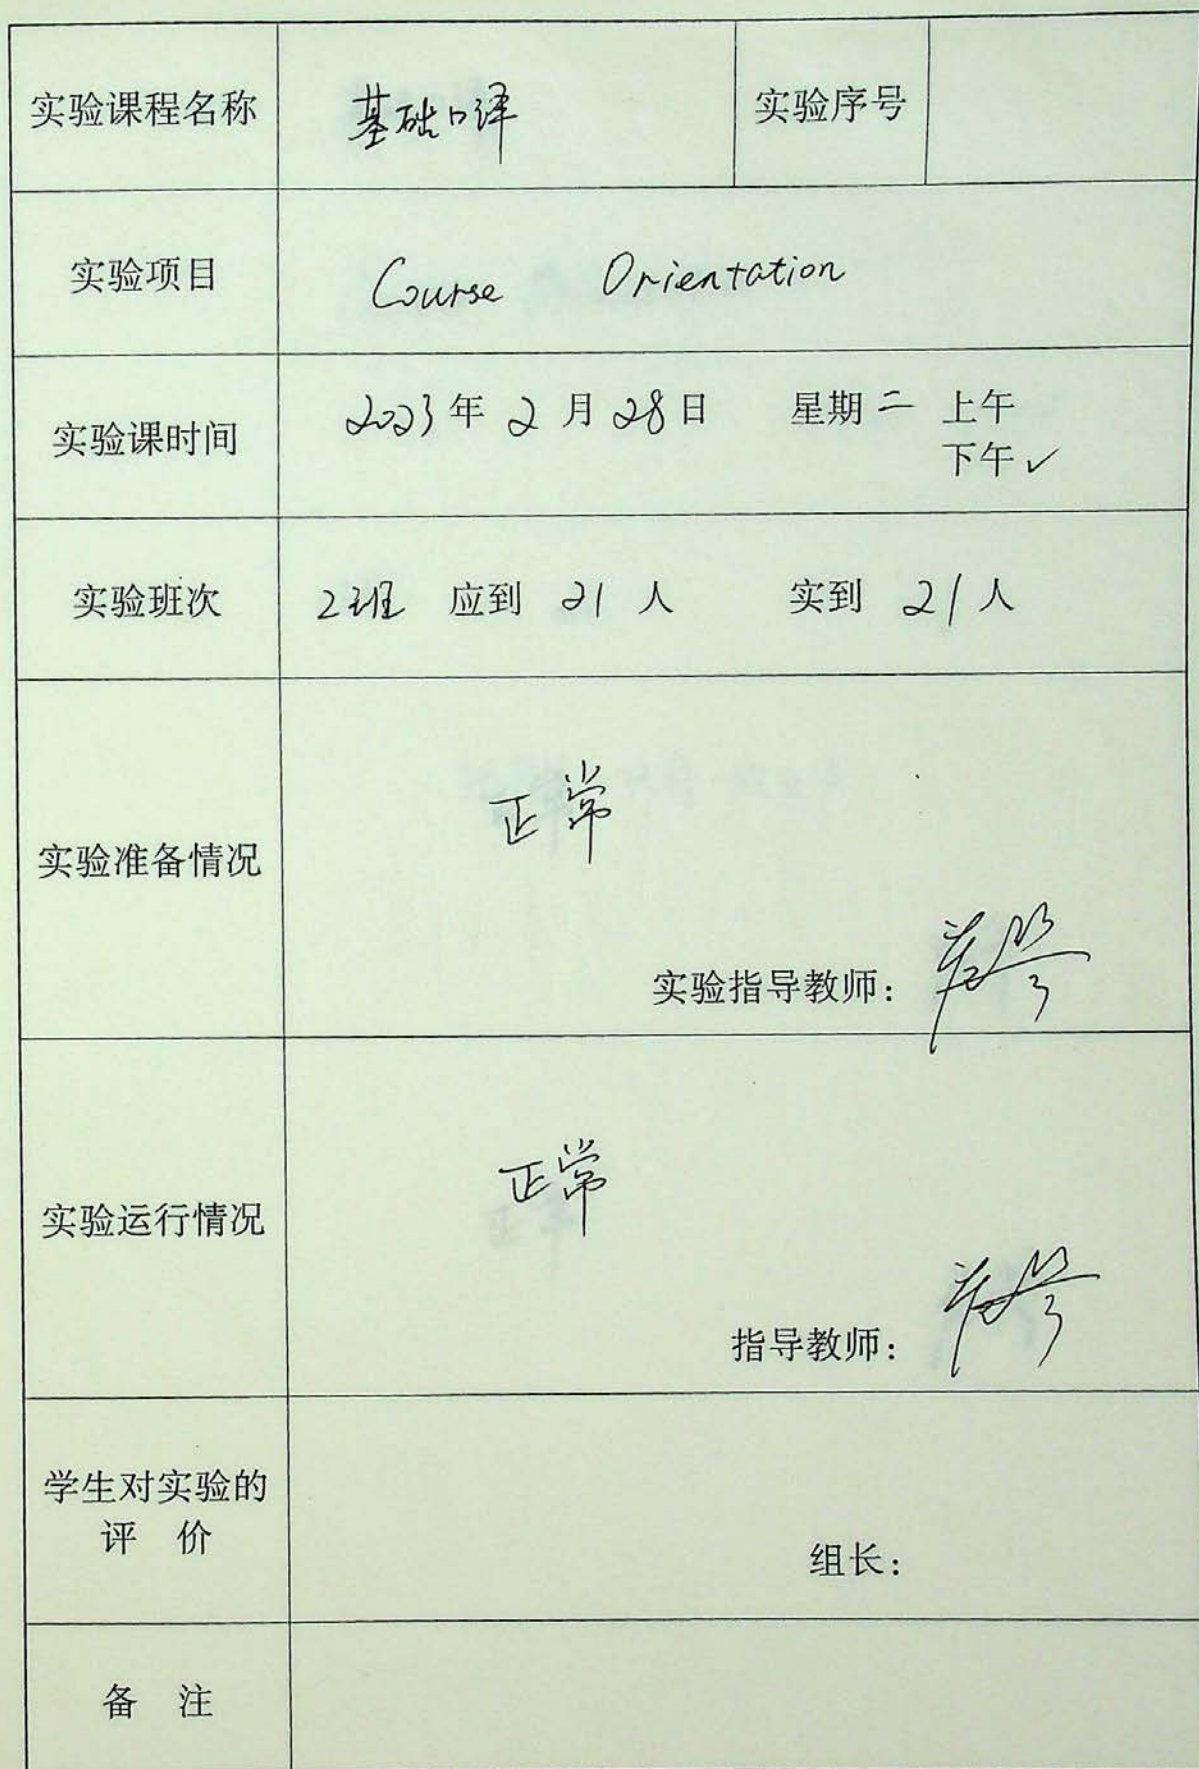 实验课程名称 基础口译 实验序号
实验项目 Course Orientation
实验课时间 2023年 2 月 28日 星期二 上午
下午✓
实验班次 2班 应到 21 人 实到 21人
正常
实验准备情况
实验指导教师:
正常
实验运行情况
指导教师:
学生对实验的
评 价
组长:
备 注